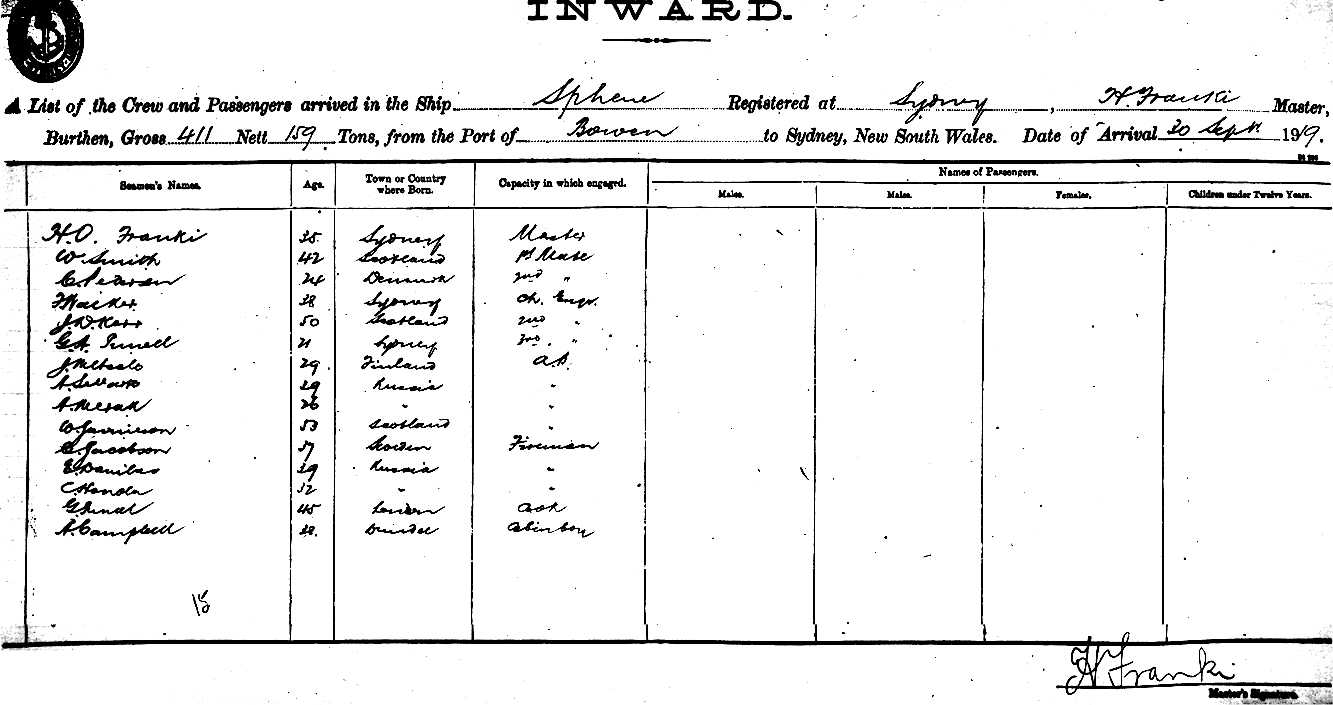 INWARD.
A List of the Crew and Passengers arrived in the Ship Sphene Registered at Sydney, H. Franki Master,
Burthen, Gross 411 Nett 159 Tons, from the Port of Bowen to Sydney, New South Wales. Date of Arrival 30 Sept. 1919.
Names of Passengers.
Seamen's Names. Age. Town or Country where Born. Capacity in which engaged. Males. Males. Females. Children under Twelve Years.
H.O. Franki 35 Sydney Master
W Smith 42 Scotland 1st Mate
C. Pedersen 24 Denmark 2nd "
38 Sydney Ch. Engr.
J.D. Kerr 50 Scotland 2nd "
G.A. 21 Sydney 3rd "
J. 29 Finland A.B.
A. 29 Russia "
A. 26 " "
W. Jamieson 53 Scotland "
C. Jacobson 57 Sweden Fireman
E. Danilas 39 Russia "
C. Honda 32 " "
G. 45 London Cook
A. Campbell 38. Dundee Cabin boy
15
H Franki
Master's Signature.